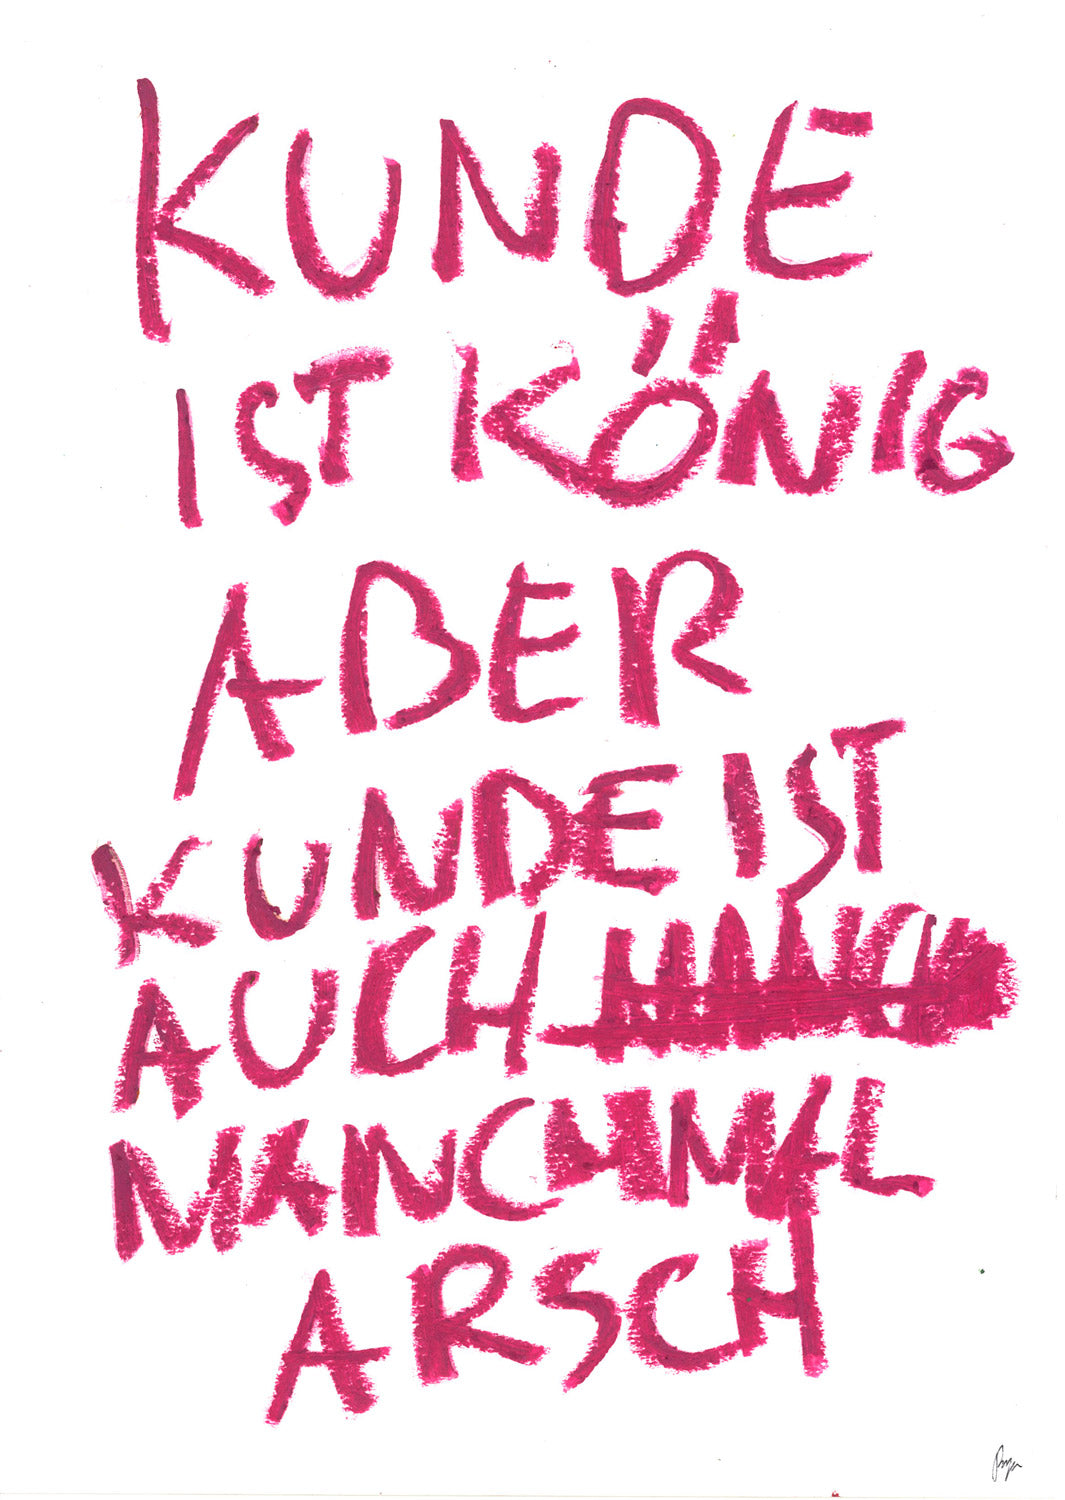 KUNDE
IST KÖNIG
ABER
KUNDE IST
AUCH
MANCHMAL
ARSCH